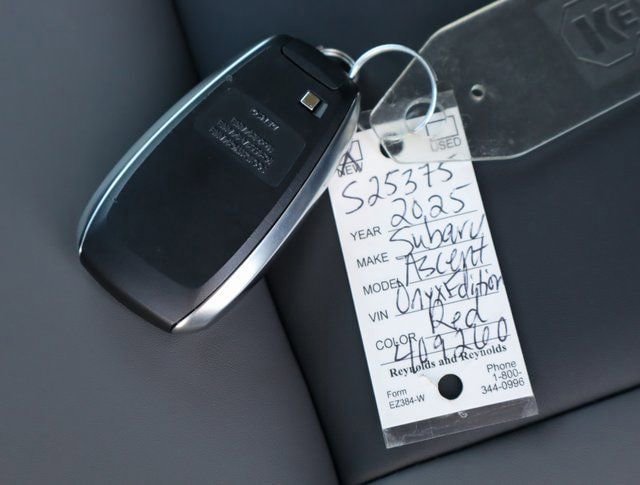 KE
NEW
USED
S25375
YEAR 2025
MAKE Subaru
MODEL Ascent
VIN Onyx Edition
COLOR Red
409260
Reynolds and Reynolds
Form
EZ384-W
Phone
1-800-
344-0996